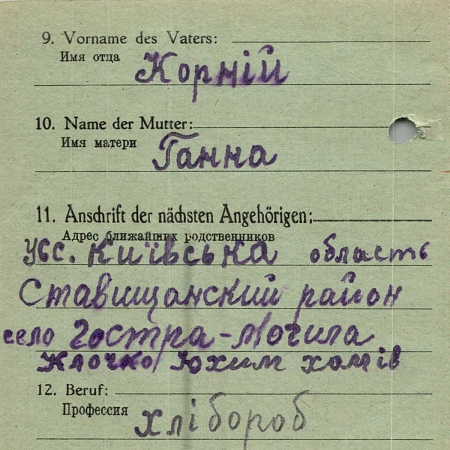 9. Vorname des Vaters:
Имя отца
Корній
10. Name der Mutter:
Имя матери
Ганна
11. Anschrift der nächsten Angehörigen:
Адрес ближайших родственников
Київська область
Ставищанский район
село Гостра-Могила
Клочко Юхим
12. Beruf:
Профессия
хлібороб